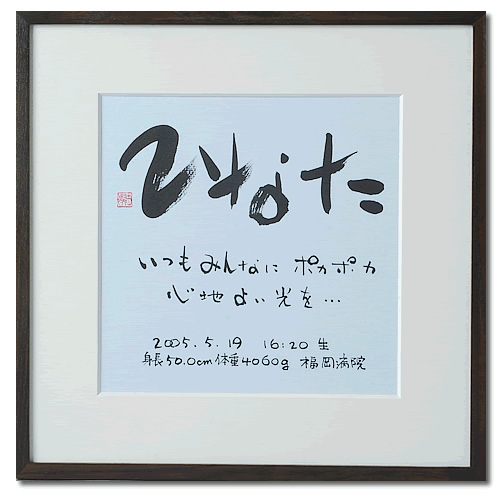 ひなた
いつもみんなに ポカポカ
心地よい光を…
2005.5.19 16:20 生
身長50.0cm 体重4060g 福岡病院